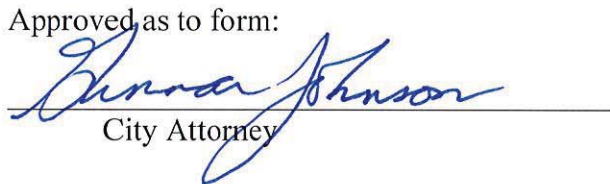 Approved as to form:
Johnson
City Attorney